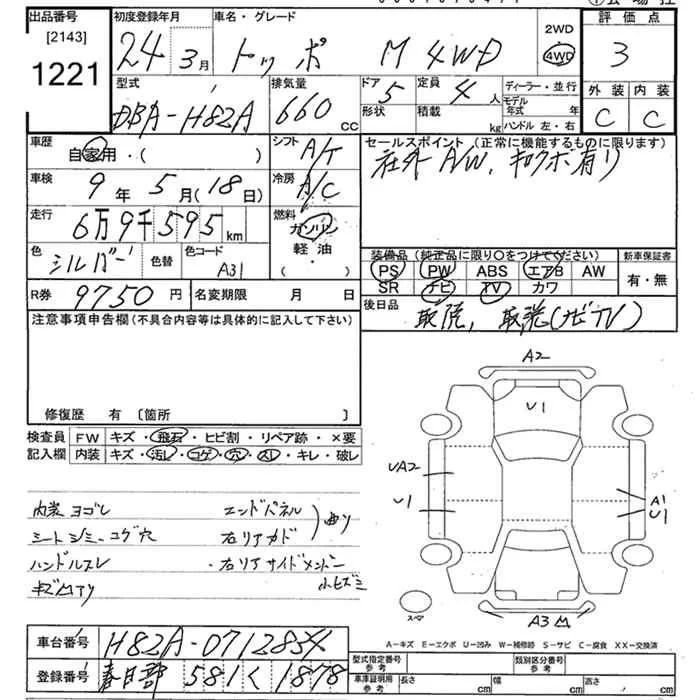 出品番号 初度登録年月 車名・グレード 2WD 評価点
[2143] 24 3月 トッポ M 4WD 4WD 3
1221
型式 排気量 ドア 5 定員 4人 ディーラー・並行 外装 内装
DBA-H82A 660cc 形状 積載 kg モデル年式 年 C C
ハンドル 左・右
車歴 自家用・( ) シフト A/T セールスポイント(正常に機能するものに限ります)
車検 9年5月(18日) 冷房 A/C 社外A/W、キロクボ有り
走行 6万9千595km 燃料 ガソリン
軽油
( )
色 シルバー 色替 色コード A31
装備品(純正品に限り〇をつけてください) 新車保証書
PS PW ABS エアB AW 有・無
SR ナビ TV カワ
R券 9750円 名変期限 月 日 後日品 取説、取説(ナビTV)
注意事項申告欄(不具合内容等は具体的に記入して下さい)
修復歴 有 〔箇所 〕
検査員 FW キズ・飛石・ヒビ割・リペア跡・×要
記入欄 内装 キズ・汚レ・コゲ・穴・スレ・キレ・破レ
A2
U1
UA2
U1
A1
U1
A3
スペア
内装ヨゴレ エンドパネル
シートシミ・コゲ穴 右リアカド 曲リ
ハンドルスレ ・右リアサイドメンバー
小ヒズミ
A-キズ E-エクボ U-凹み W-補修跡 S-サビ C-腐食 XX-交換済
車台番号 H82A-0712854
登録番号 春日部 581 く 1878
型式指定番号 参考 類別区分番号 参考
車庫証明用 参考 長さ cm 幅 cm 高さ cm